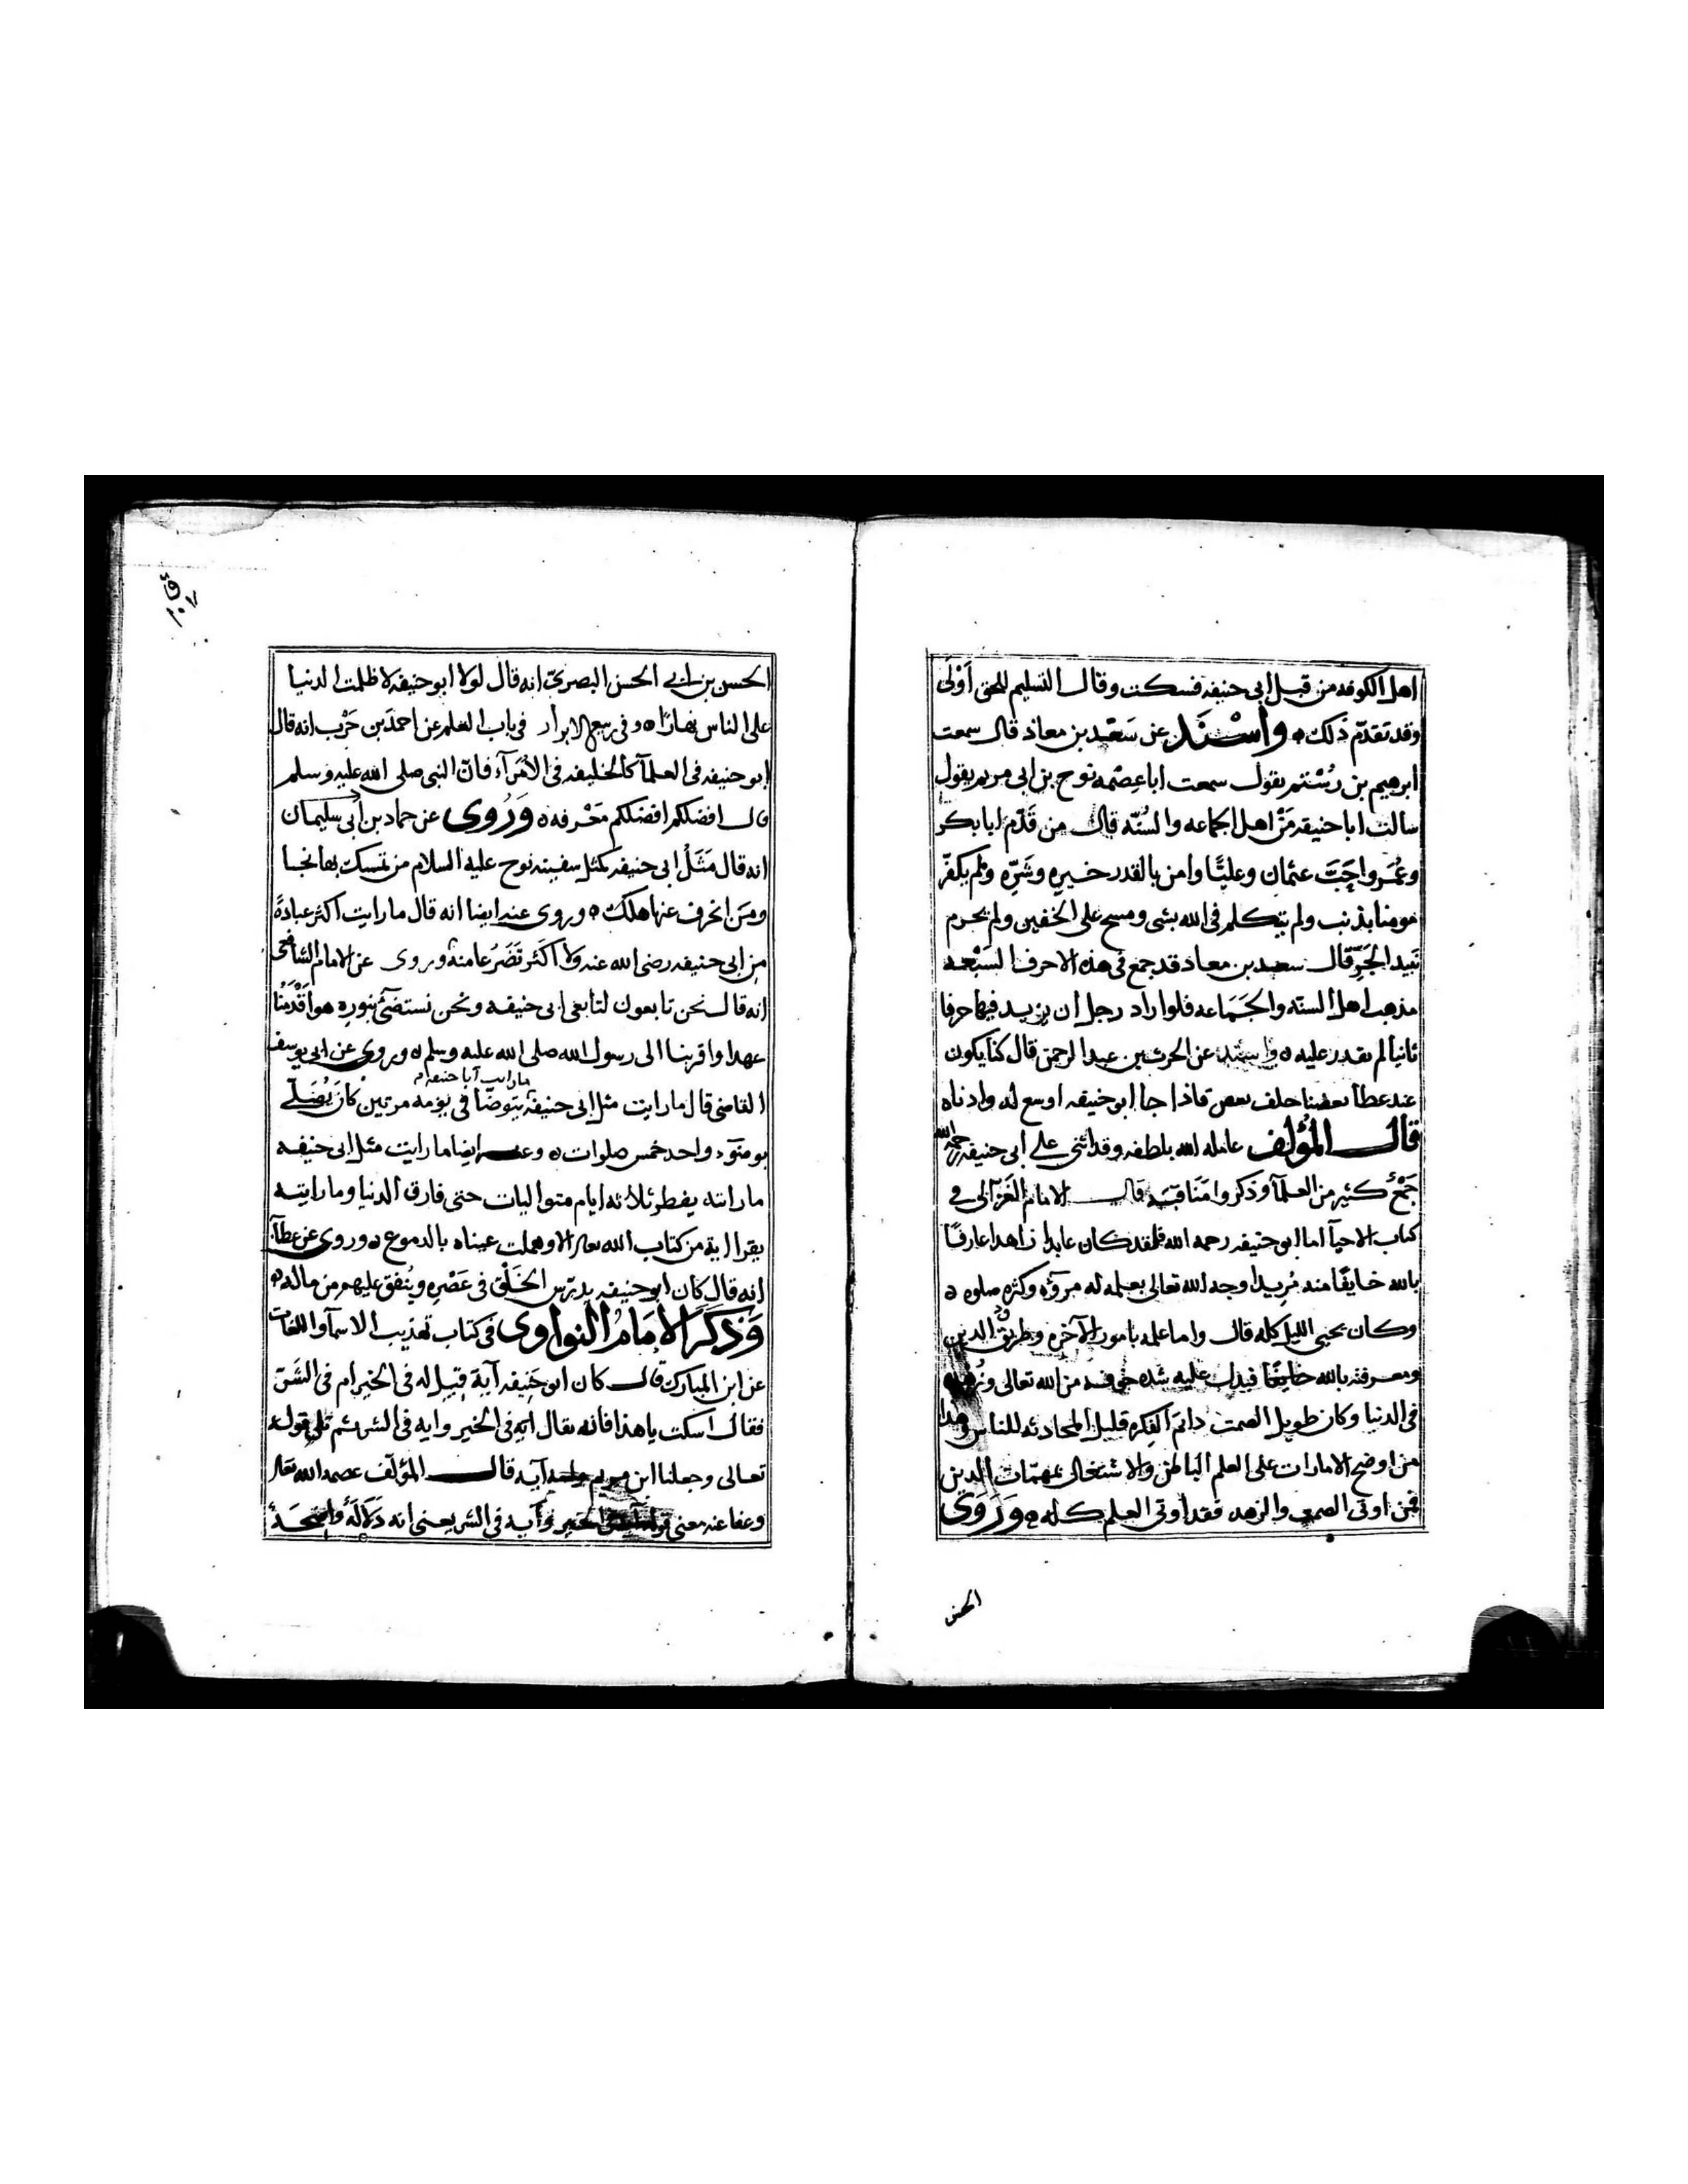 اهل الكوفه من قبل ابى حنيفه فسكت وقال التسليم للحق أَوْلَى
وقد تقدّم ذلك ه وأسْنَدَ عن سَعيد بن معاذ قال سمعت
ابرهيم بن رُسْتم يقول سمعت اباعِصْمه نوح بن ابى مريم يقول
سالت ابا حنيفه مَنْ اهل الجماعه والسُنّه قال من قَدّم ابا بكر
وعُمَر واحَبّ عثمان وعليًّا وامن بالقدر خيرِه وشَرِّه ولم يكفّر
مومنا بذنب ولم يتكلم فى الله بشى ومسح على الخفين ولم يحرم
نبيد الجَرّ قال سعيد بن معاد قد جمع فى هذه الاحرف السَبْعه
مذهب اهل السنّه والجَمَاعه فلو اراد رجل ان يزيد فيها حرفا
ثانيا لم يقدر عليه ه وأسند عن الحرث بن عبد الرحمن قال كنا يكون
عند عطا بعضنا خلف بعض فاذا جا ابو حنيفه اوسع له وادناه
قال المؤلف عامله الله بلطفه وقد اثنى على ابى حنيفه رحمه الله
جَمْعٌ كثير من العلمآ وذكروا مَنَاقبَه قال الامام الغَزالى فى
كتاب الاحيآ اما ابو حنيفه رحمه الله فلقد كان عابدا زاهدا عارفًا
بالله خايفًا منه مُريدا وجه الله تعالى بعلمه له مروّه وكثره صلوه ه
وكان يحيى الليل كله قال واما علمه بامور الآخره وطريق الدين
ومعرفته بالله خايفًا فيدل عليه شده خوفه من الله تعالى وزُهده
فى الدنيا وكان طويل الصمت دائم الفِكره قليل المحادثه للناس وهذا
من اوضح الامارات على العلم الباطن والاشتغال بمهمّات الدين
فمن اوتى الصمت والزهد فقد اوتى العلم كله ه ورَوَى
الحسن
١٠٧
الحسن بن ابى الحسن البصرىّ انه قال لولا ابو حنيفه لاظلمت الدنيا
على الناس نهارًا ه وفى ربيع الابرار فى باب العلم عن احمد بن حَرْب انه قال
ابو حنيفه فى العلمآ كالخليفه فى الأمَرآء فانّ النبى صلى الله عليه وسلم
قال افضلكم افضلكم مَعْرفه ه وَرُوى عن حماد بن أبى سليمان
انه قال مَثَلُ ابى حنيفه كمثل سفينه نوح عليه السلام من تمسك بها نجا
ومَن انحرف عنها هلك ه وروى عنه ايضا انه قال ما رايت اكثر عبادةً
مِن ابى حنيفه رضى الله عنه ولا اكثر تَضَرُعا منه وروى عن الامام الشافعى
انه قال نحن تابعون لتابعى ابى حنيفه ونحن نستضئ بنورِه هو اقْدَمُنا
عهدا واقربنا الى رسول الله صلى الله عليه وسلم ه وروى عن ابى يوسف
ما رايت ابا حنيفه
القاضى قال ما رايت مثل ابى حنيفه يتوضا فى يومه مرتين كان يُصَلّى
بوضوء واحد خمس صلوات ه وعنه ايضا ما رايت مثل ابى حنيفه
ما رايته يفطر ثلاثه ايام متواليات حتى فارق الدنيا وما رايته
يقرا اية من كتاب الله تعالى الا وهملت عيناه بالدموع ه وروى عن عطآ
انه قال كان ابو حنيفه يدرّس الخَلْق فى عَصْرِه ويُنفق عليهم من ماله ه
وَذكَرَ الأِمَامُ النواوى فى كتاب تهذيب الاسمآ واللغات
عن ابن المبارك قال كان ابو حَنِيفه آيَة قِيل له فى الخير ام فى الشَرّ
فقال اسكت يا هذا فانه يقال آيَه فى الخير وايه فى الشر ثم تلى قوله
تعالى وجعلنا ابن مريم وامه آيه قال المؤلف عصمه الله تعالى
وعفا عنه معنى الخير وآيه فى الشر يعنى انه دَلالَة واضحَةٌ